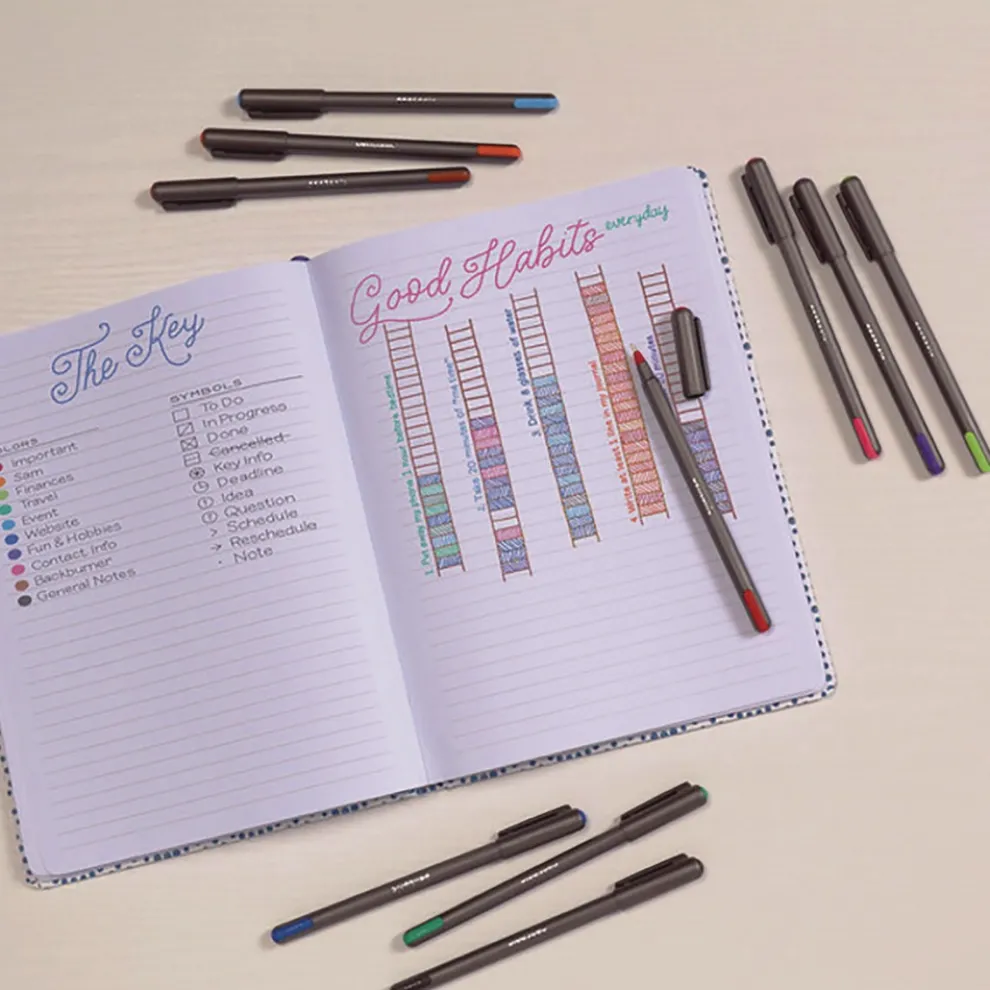 The Key
SYMBOLS
Important
Sam
Finances
Travel
Event
Website
Fun & Hobbies
Contact Info
Backburner
General Notes
To Do
In Progress
Done
Cancelled
Key Info
Deadline
Idea
Question
Schedule
Reschedule
Note
Good Habits everyday
1. Put away my phone 1 hour before bedtime
2. Take 20 minutes of "me time"
3. Drink 8 glasses of water
4. Write at least 1 line in my journal
minutes